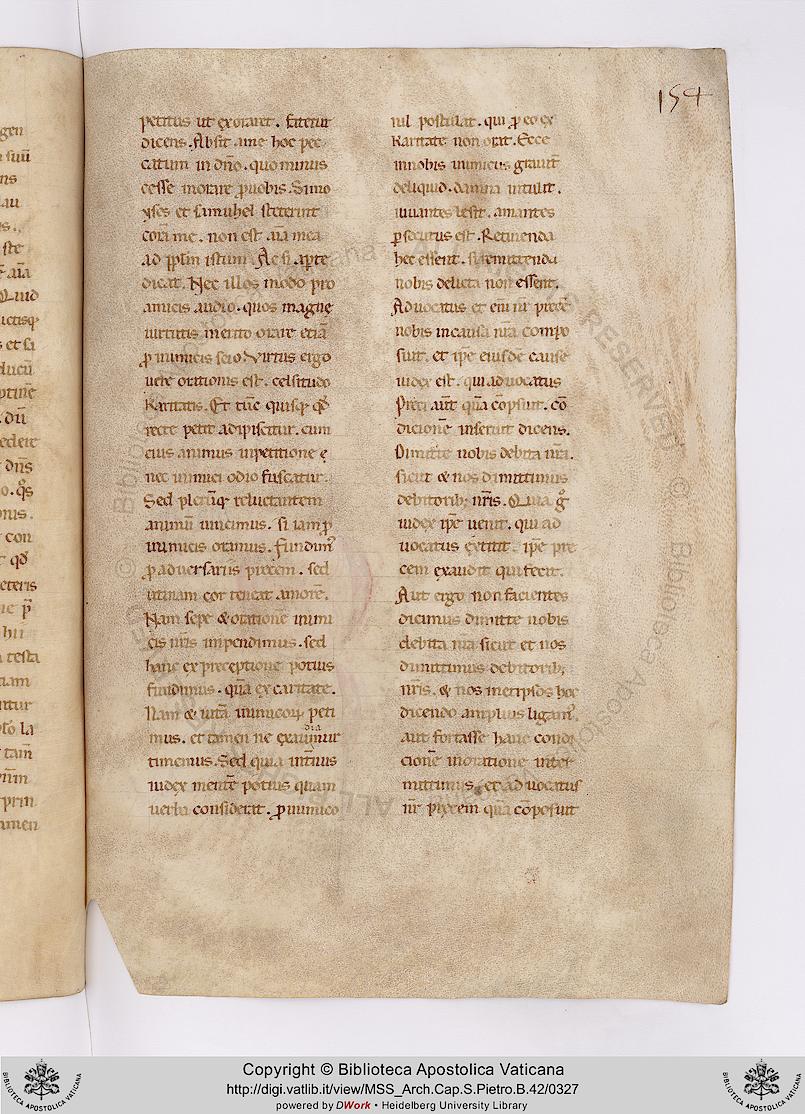 154
petitus ut exoraret. fatetur
dicens. Absit a me hoc pec
catum in dño. quo minus
cesse morare ꝓ uobis. Si mo
yses et samuhel steterint
corā me. non est aīa mea
ad pplm istum. Ac si aꝑte
dicat. Nec illos modo pro
amicis audio. quos magnę
uirtutis merito orare etiā
ꝓ inimicis scio. Virtus ergo
uere orationis est. celsitudo
karitatis. Et tūc quisq; qđ
recte petit adipiscitur. cum
eius animus in petitione ę
nec inimici odio fuscatur.
Sed plerūq; reluctantem
animū uincimus. si iam ꝓ
inimicis oramus. fundim᷒
ꝓ aduersariis precem. sed
utinam cor teneat amorē.
Nam sepe & oratione inimi
cis nr̄is impendimus. sed
hanc ex preceptione potius
fundimus. quā ex caritate.
Nam & uitā inimicoꝝ peti
mus. et tamen ne exaudiamur
timemus. Sed quia int̄nus
iudex mentē potius quam
uerba considerat. ꝓ inimico
nil postulat. qui ꝓ eo ex
karitate non orat. Ecce
in nobis inimicus grauit̄
deliquid. damna intulit.
iuuantes lesit. amantes
ꝑsecutus est. Retinenda
hec essent. si remittenda
nobis delicta non essent.
Aduocatus et enī nr̄ precē
nobis in causa nr̄a compo
suit. et ipe eiusdē cause
iudex est. qui aduocatus
Preci aut̄ quā cōposuit. cō
dicionē inseruit dicens.
Dimitte nobis debita nr̄a.
sicut & nos dimittimus
debitorib; nr̄is. Quia g̊
iudex ipe uenit. qui ad
uocatus extitit. ipe pre
cem exaudit qui fecit.
Aut ergo non facientes
dicimus dimitte nobis
debita nr̄a sicut et nos
dimittimus debitorib;
nr̄is. & nos metipsos hoc
dicendo amplius ligam᷒.
aut fortasse hanc condi
cionē in oratione inter
mittimus. et aduocatus
nr̄ precem quā cōposuit
Copyright © Biblioteca Apostolica Vaticana
http://digi.vatlib.it/view/MSS_Arch.Cap.S.Pietro.B.42/0327
powered by DWork • Heidelberg University Library